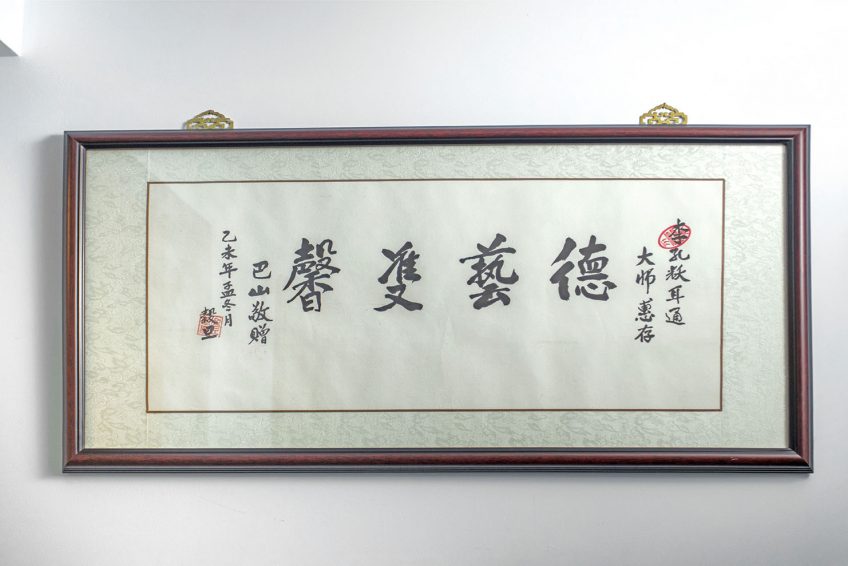 李孔耳通
大师蕙存
德藝雙馨
巴山敬赠
乙未年孟冬月